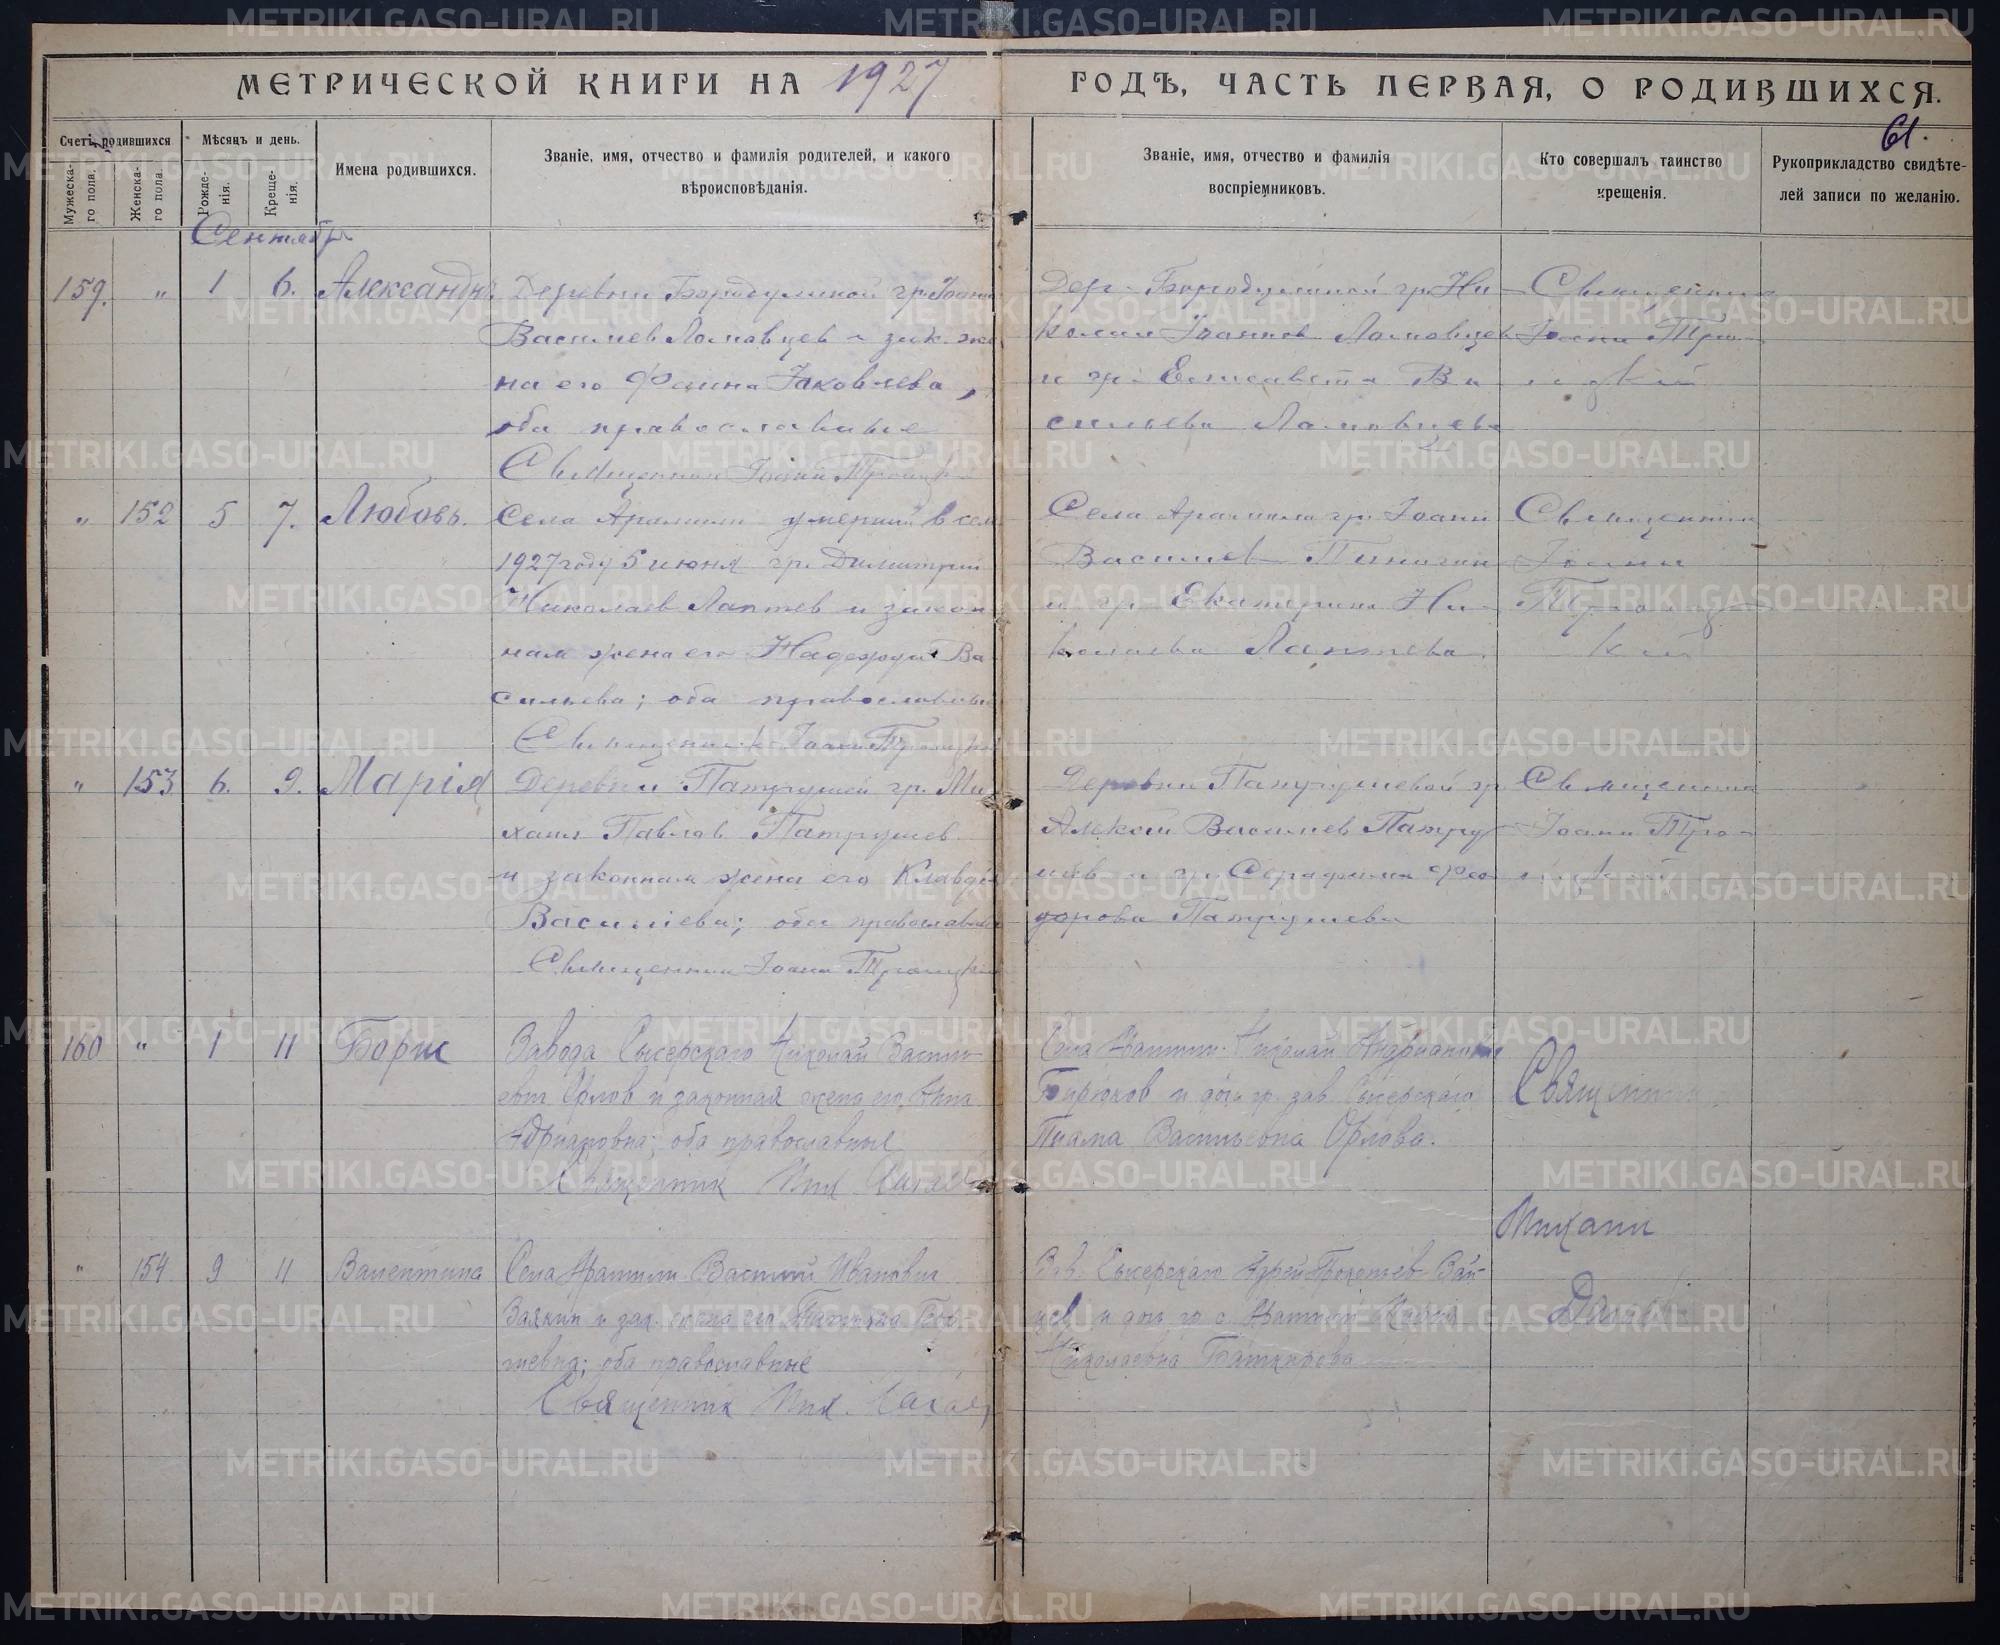 МЕТРИЧЕСКОЙ КНИГИ НА 1927 ГОДЪ, ЧАСТЬ ПЕРВАЯ, О РОДИВШИХСЯ.
61.
Счетъ родившихся
Мужеска-го пола.
Женска-го пола.
Мѣсяцъ и день.
Рожде-нія.
Креще-нія.
Имена родившихся.
Званіе, имя, отчество и фамилія родителей, и какого
вѣроисповѣданія.
Званіе, имя, отчество и фамилія
воспріемниковъ.
Кто совершалъ таинство
крещенія.
Рукоприкладство свидѣте-
лей записи по желанію.
Сентябрь
159. " 1 6. Александръ
Деревни Бородулиной гр. Іоанн
Васильев Ламовцев и зак. же
на его Фаина Іаковлева,
оба православные
Священник Іоанн Троицкій
Дер. Бородулиной гр. Ни-
колай Іоаннов Ламовцев
и гр. Елисавета Ва
сильева Ламовцева
Священник
Іоанн Тро-
ицкій
" 152 5 7. Любовь.
Села Арамили умерший в сем
1927 году 5 июня гр. Димитрий
Николаев Лаптев и закон
ная жена его Надежда Ва
сильева; оба православные
Священник Іоанн Троицкий
Села Арамили гр. Іоанн
Васильев
и гр. Екатерина Ни-
колаева Лаптева.
Священник
Іоанн
Троиц
кий
" 153 6. 9. Марія
Деревни Патрушей гр. Ми
хаил Павлов Патрушев
и законная жена его Клавдія
Васильева; оба православные
Священник Іоанн Троицкий
Деревни Патрушевой гр
Алексей Васильев Патру
шев и гр. Серафима Фео
дорова Патрушева
Священник
Іоанн Тро-
ицкий
160 " 1 11 Борис
Завода Сысерскаго Николай Василь-
евич Орлов и законная жена его Анна
Адриановна; оба православные
Священник Мих.
Села Арамили Николай Андрианович
Бирюков и гр. зав. Сысерскаго
Васильевна Орлова.
Священник
Михаил
" 154 9 11 Валентина
Села Арамили Василий Иванович
Заякин и зак. жена его Татьяна
оба православные
Священник Мих.
Зав. Сысерскаго
и гр. с. Арамили Мария
Николаевна Башкирова
METRIKI.GASO-URAL.RU